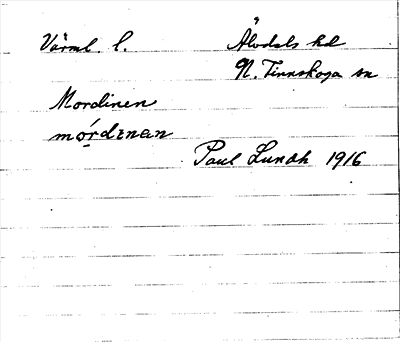 Värml. l. Älvdals hd
N. Finnskoga sn
Mordinen
mórdɪnan
Paul Lundh 1916